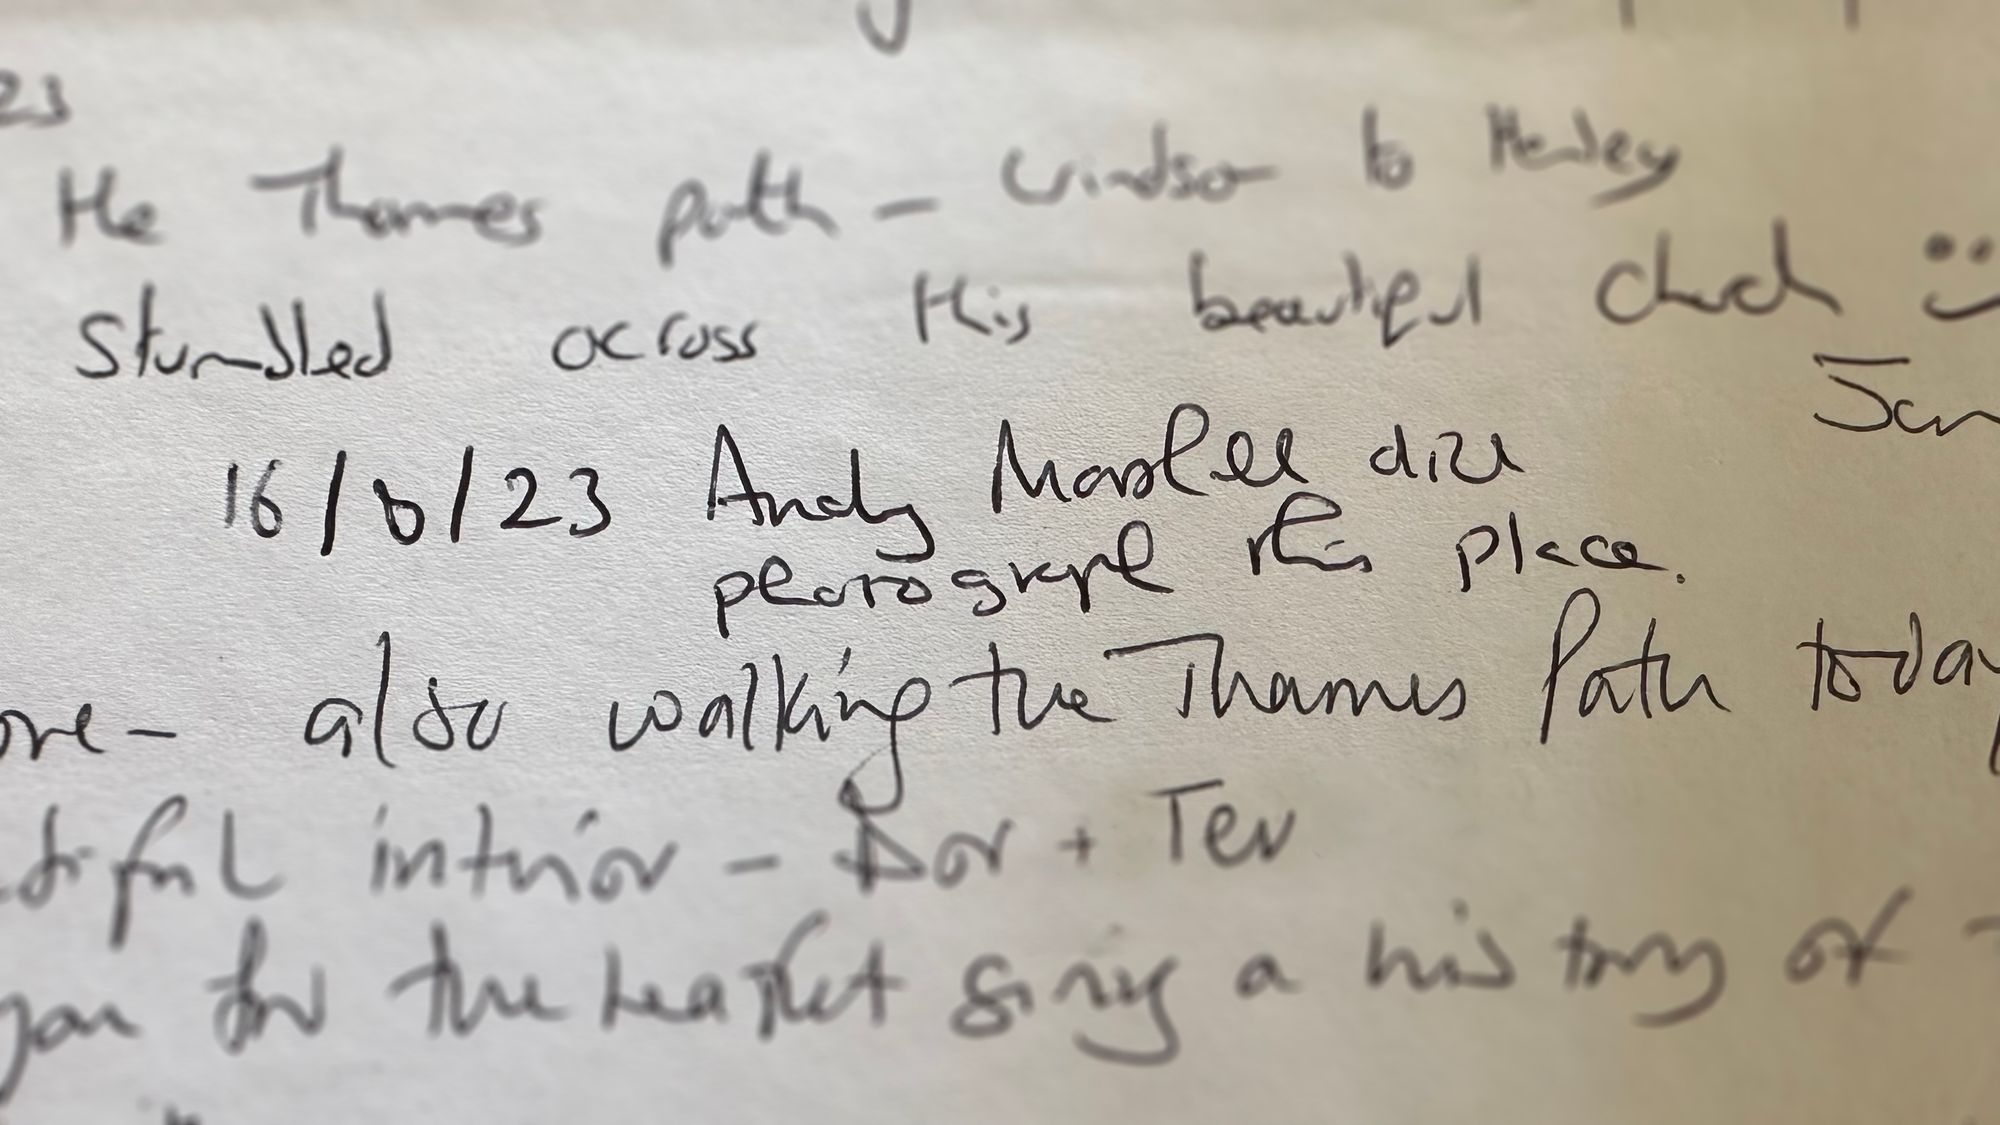 23
the Thames path - Windsor to Henley
stumbled across this beautiful church :)
Jan
16/6/23 Andy Marshall did
photograph this place.
ove - also walking the Thames Path today
tiful interior - Dor + Tev
you for the leaflet giving a history of